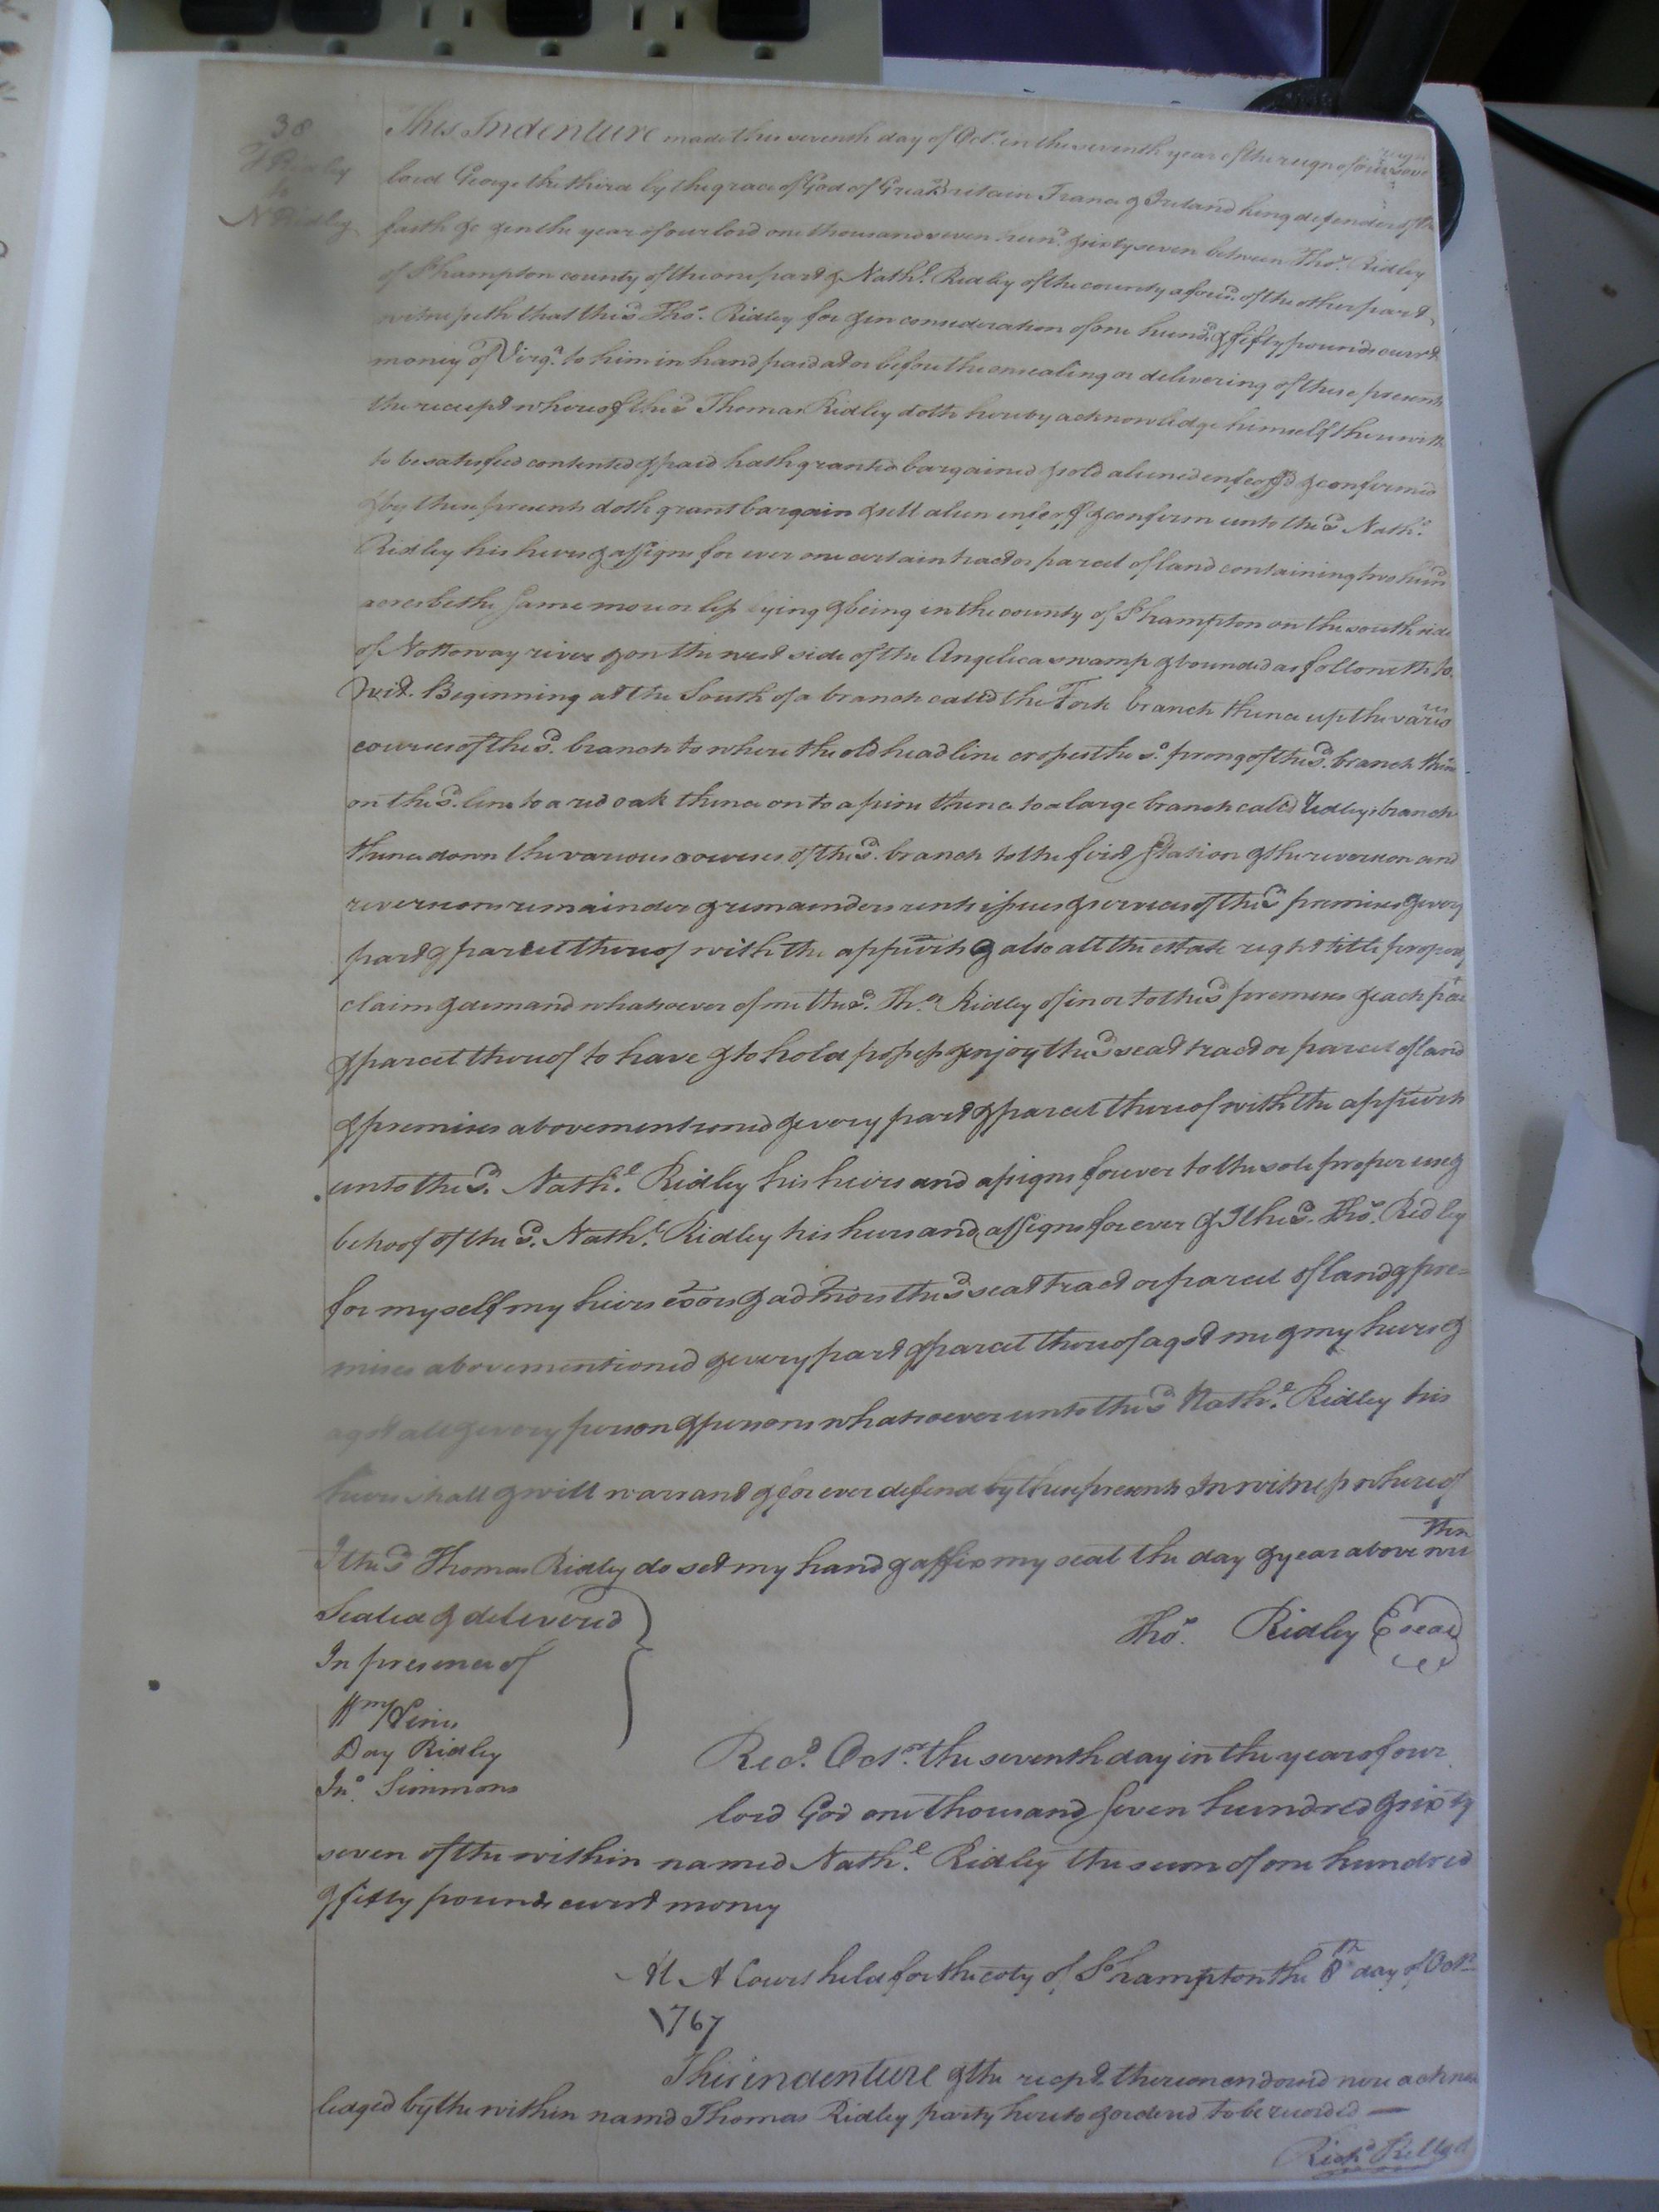 38
T Ridley
to
N Ridley
This Indenture made the seventh day of Octr. in the seventh year of the reign of our sove
reign
lord George the third by the grace of God of Great Britain France & Ireland king defender of the
faith &c & in the year of our lord one thousand seven hund. & sixty seven between Thos. Ridley
of Shampton county of the one part & Nathl. Ridley of the county aforsd. of the other part
witnesseth that the sd Thos. Ridley for & in consideration of one hund. & fifty pounds currt
money of Virga. to him in hand paid at or before the ensealing or delivering of these presents
the receipt whereof the sd Thomas Ridley doth hereby acknowledge himself therewith
to be satisfied contented & paid hath granted bargained & sold aliened enfeoffd & confirmed
& by these presents doth grant bargain & sell alien enfeoff & confirm unto the sd. Nathl.
Ridley his heirs & assigns for ever one certain tract or parcel of land containing two hund
acres be the same more or less lying & being in the county of Shampton on the south side
of Nottoway river & on the west side of the Angelica swamp & bounded as followeth to
wit. Beginning at the South of a branch calld the Fork branch thence up the vario
us
courses of the sd. branch to where the old head line crosses the so. prong of the sd. branch thence
on the sd. line to a red oak thence on to a pine thence to a large branch calld Ridleys branch
thence down the various courses of the sd. branch to the first station & the reversion and
reversions remainder & remainders rents issues & services of the sd premises & every
part & parcel thereof with the appurts & also all the estate right title property
claim & demand whatsoever of me the sd. Tho. Ridley of in or to the sd premises & each par
t
& parcel thereof to have & to hold possess & enjoy the sd seat tract or parcel of land
& premises abovementioned & every part & parcel thereof with the appurts
unto the sd. Nathl. Ridley his heirs and assigns forever to the sole proper use &
behoof of the sd. Nathl. Ridley his heirs and assigns for ever & I the sd. Thos. Ridley
for myself my heirs exors & admors the sd seat tract or parcel of land & pre=
mises abovementioned & every part & parcel thereof agst me & my heirs &
agst all & every person & persons whatsoever unto the sd Nathl. Ridley his
heirs shall & will warrant & for ever defend by these presents In witness whereof
I the sd Thomas Ridley do set my hand & affix my seal the day & year above wri
tten
Sealed & delivered
In presence of
Wm
Day Ridley
Jno. Simmons
Thos. Ridley seal
Recd. Octor. the seventh day in the year of our
lord God one thousand seven hundred & sixty
seven of the within named Nathl. Ridley the sum of one hundred
& fifty pounds currt money
At A Court held for the coty of Shampton the 8th day of Octr
1767
This indenture & the recpt. thereon endorsd were acknow
ledged by the within namd Thomas Ridley party hereto & orderd to be recorded —
Richd Kello